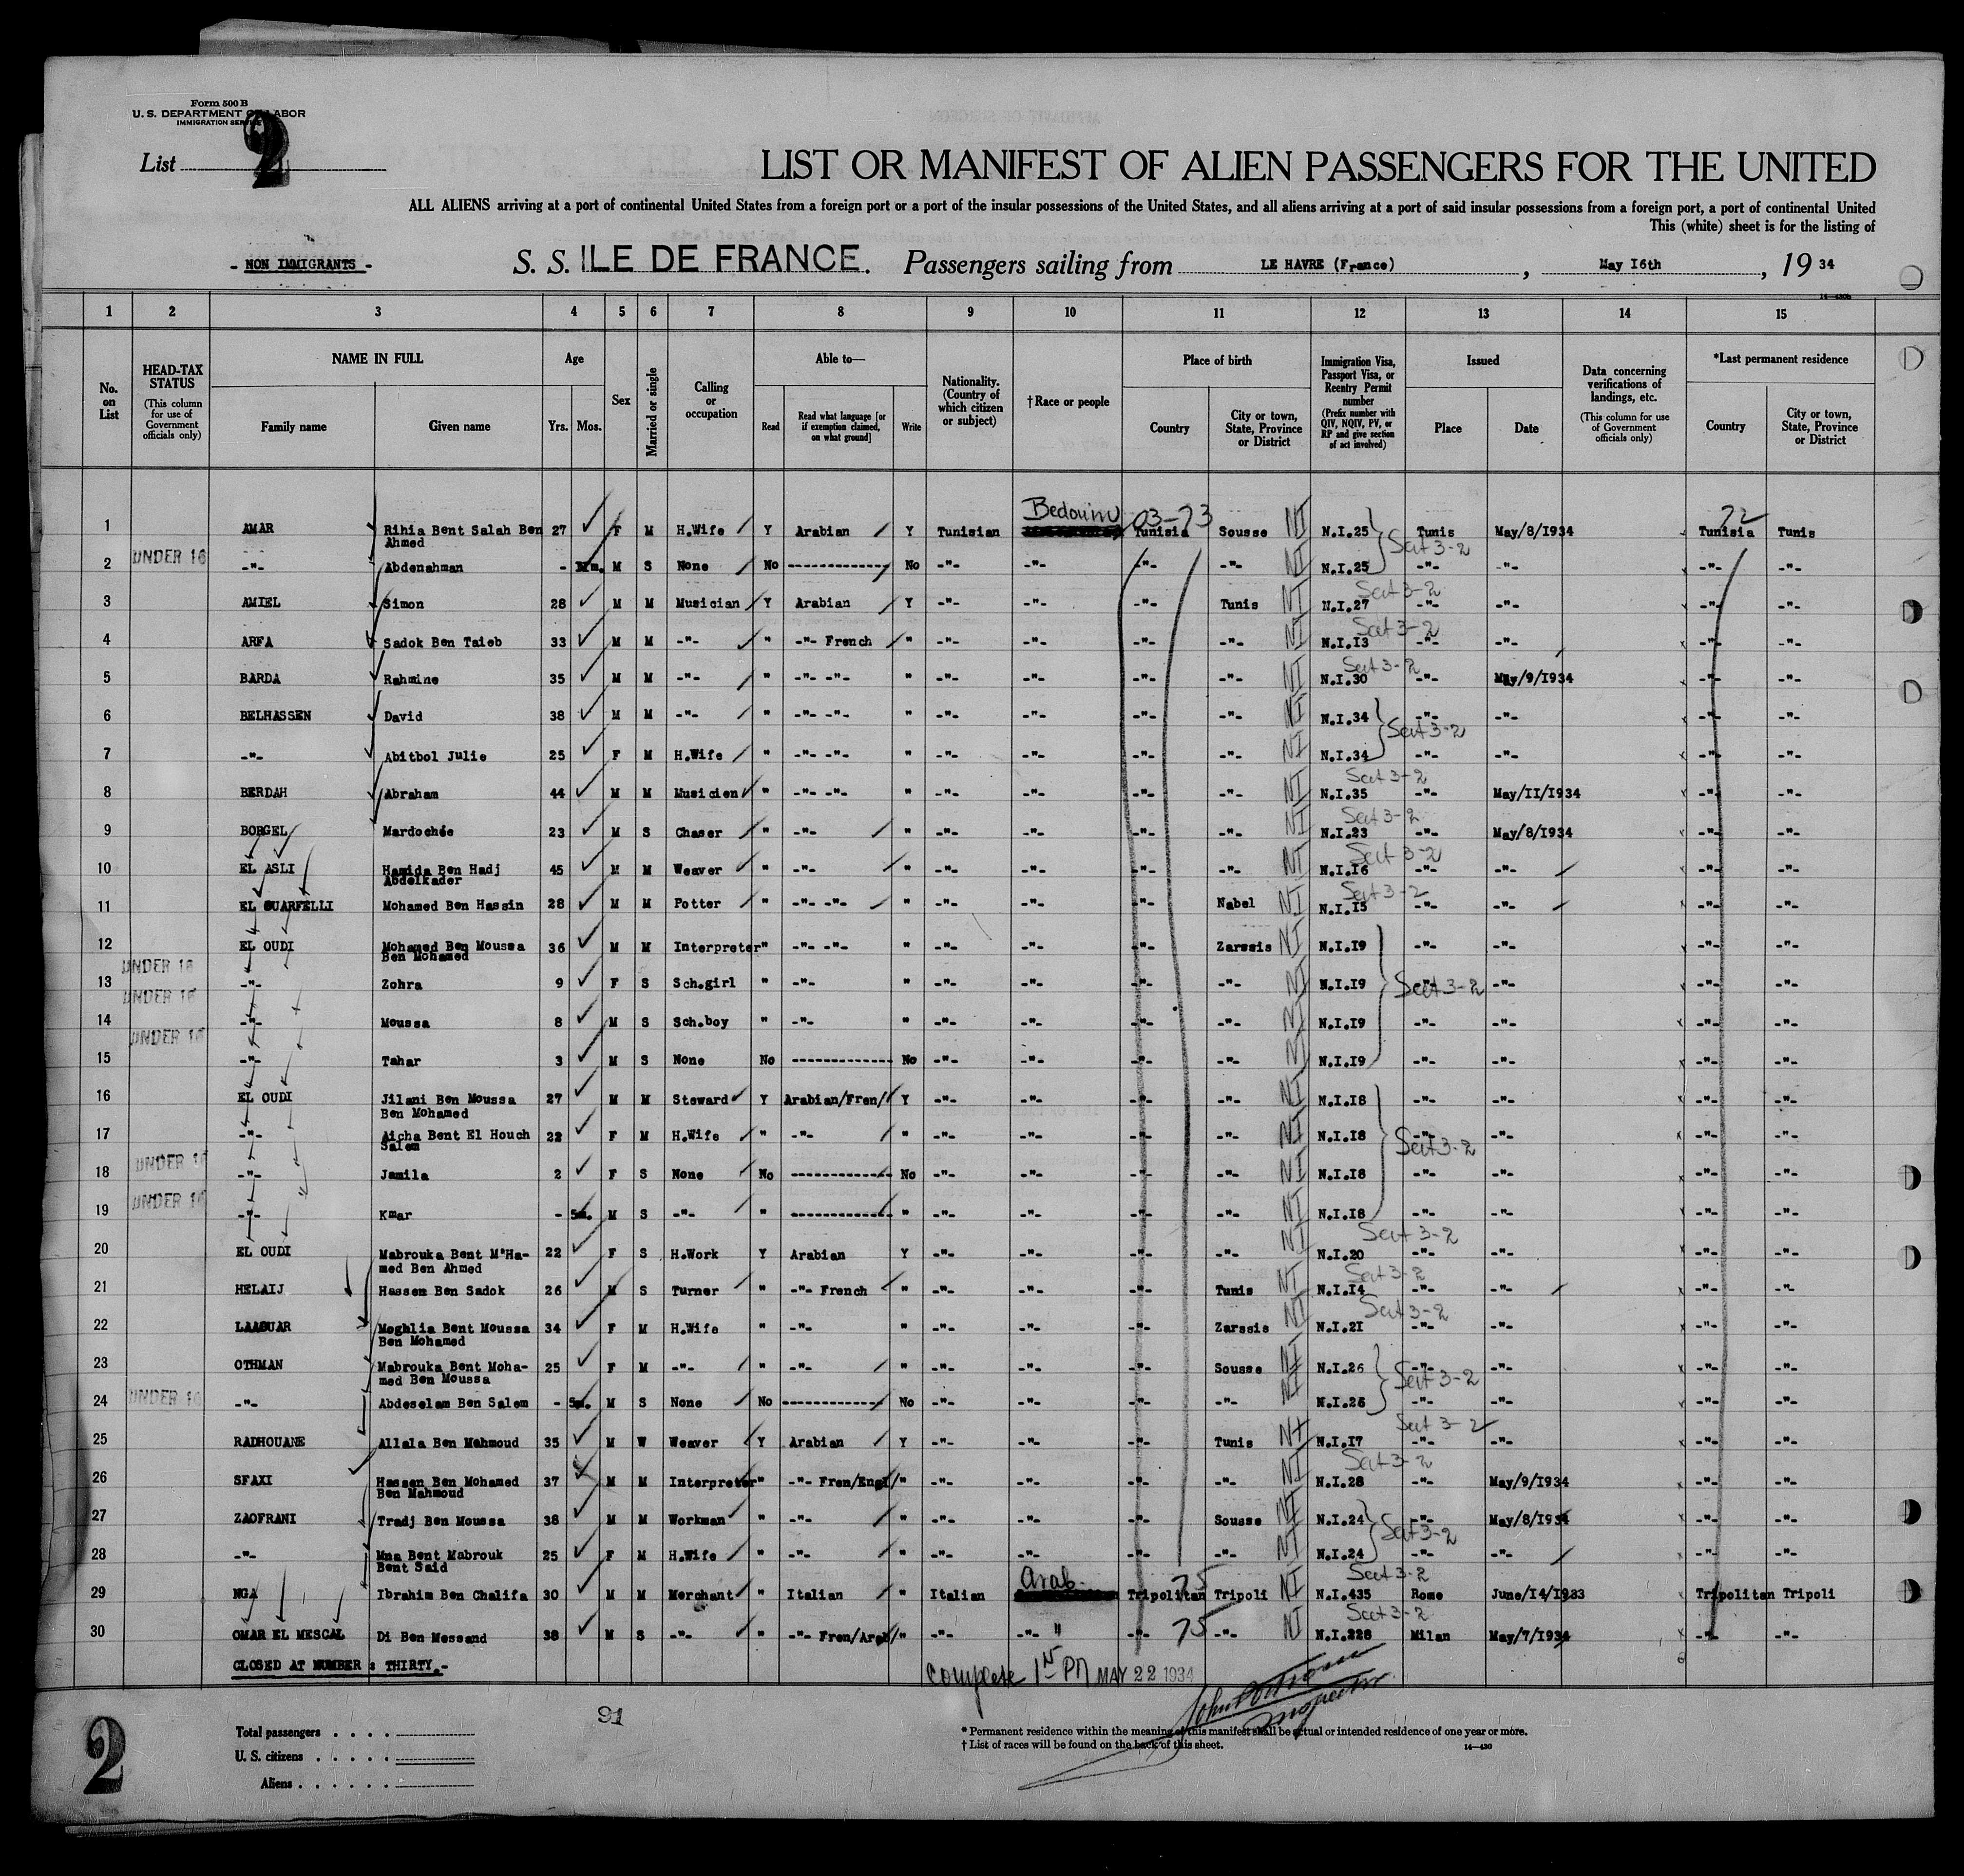 Form 500 B
U. S. DEPARTMENT OF LABOR
IMMIGRATION SERVICE
List 2
LIST OR MANIFEST OF ALIEN PASSENGERS FOR THE UNITED
ALL ALIENS arriving at a port of continental United States from a foreign port or a port of the insular possessions of the United States, and all aliens arriving at a port of said insular possessions from a foreign port, a port of continental United
This (white) sheet is for the listing of
- NON IMMIGRANTS - S. S. ILE DE FRANCE. Passengers sailing from LE HAVRE (France), May 16th, 19 34
14—430b
1 2 3 4 5 6 7 8 9 10 11 12 13 14 15
No. on List
HEAD-TAX STATUS (This column for use of Government officials only)
NAME IN FULL
Family name Given name
Age
Yrs. Mos.
Sex
Married or single
Calling or occupation
Able to—
Read Read what language [or if exemption claimed, on what ground] Write
Nationality. (Country of which citizen or subject)
†Race or people
Place of birth
Country City or town, State, Province or District
Immigration Visa, Passport Visa, or Reentry Permit number (Prefix number with QIV, NQIV, PV, or RP and give section of act involved)
Issued
Place Date
Data concerning verifications of landings, etc. (This column for use of Government officials only)
*Last permanent residence
Country City or town, State, Province or District
Bedouin 03-73 72
1 AMAR Rihia Bent Salah Ben Ahmed 27 F M H.Wife Y Arabian Y Tunisian Tunisia Sousse NI N.I.25 Tunis May/8/1934 Tunisia Tunis
Sect 3-2
2 UNDER 16 -"- Abdenahman - M S None No ------------ No -"- -"- -"- -"- NI N.I.25 -"- -"- -"- -"-
3 AMIEL Simon 28 M M Musician Y Arabian Y -"- -"- -"- Tunis NI N.I.27 Sect 3-2 -"- -"- -"- -"-
4 ARFA Sadok Ben Taieb 33 M M -"- " -"- French " -"- -"- -"- -"- NI N.I.13 Sect 3-2 -"- -"- -"- -"-
5 BARDA Rahmine 35 M M -"- " -"- -"- " -"- -"- -"- -"- NI N.I.30 Sect 3-2 -"- May/9/1934 -"- -"-
6 BELHASSEN David 38 M M -"- " -"- -"- " -"- -"- -"- -"- NI N.I.34 -"- -"- -"- -"-
Sect 3-2
7 -"- Abitbol Julie 25 F M H.Wife " -"- -"- " -"- -"- -"- -"- NI N.I.34 -"- -"- -"- -"-
8 BERDAH Abraham 44 M M Musicien " -"- -"- " -"- -"- -"- -"- NI N.I.35 Sect 3-2 -"- May/II/1934 -"- -"-
9 BORGEL Mardochée 23 M S Chaser " -"- " -"- -"- -"- -"- NI N.I.23 Sect 3-2 -"- May/8/1934 -"- -"-
10 EL ASLI Hamida Ben Hadj Abdelkader 45 M M Weaver " -"- " -"- -"- -"- -"- NI N.I.16 Sect 3-2 -"- -"- -"- -"-
11 EL OUARFELLI Mohamed Ben Hassin 28 M M Potter " -"- -"- " -"- -"- -"- Nabel NI N.I.15 Sect 3-2 -"- -"- -"- -"-
12 EL OUDI Mohamed Ben Moussa Ben Mohamed 36 M M Interpreter " -"- -"- " -"- -"- -"- Zarssis NI N.I.19 -"- -"- -"- -"-
13 UNDER 16 -"- Zohra 9 F S Sch.girl " -"- " -"- -"- -"- -"- NI N.I.19 Sect 3-2 -"- -"- -"- -"-
14 UNDER 16 -"- Moussa 8 M S Sch.boy " -"- " -"- -"- -"- -"- NI N.I.19 -"- -"- -"- -"-
15 UNDER 16 -"- Tahar 3 M S None No ------------ No -"- -"- -"- -"- NI N.I.19 -"- -"- -"- -"-
16 EL OUDI Jilani Ben Moussa Ben Mohamed 27 M M Steward Y Arabian/Fren/ Y -"- -"- -"- -"- NI N.I.18 -"- -"- -"- -"-
17 -"- Aicha Bent El Houch Salem 22 F M H.Wife " -"- " -"- -"- -"- -"- NI N.I.18 Sect 3-2 -"- -"- -"- -"-
18 UNDER 16 -"- Jamila 2 F S None No ------------ No -"- -"- -"- -"- NI N.I.18 -"- -"- -"- -"-
19 UNDER 16 -"- Kmar - 5m. M S -"- " ------------ " -"- -"- -"- -"- NI N.I.18 -"- -"- -"- -"-
20 EL OUDI Mabrouka Bent M'Hamed Ben Ahmed 22 F S H.Work Y Arabian Y -"- -"- -"- -"- NI N.I.20 Sect 3-2 -"- -"- -"- -"-
21 HELAIJ Hassen Ben Sadok 26 M S Turner " -"- French " -"- -"- -"- Tunis NI N.I.14 Sect 3-2 -"- -"- -"- -"-
22 LAAOUAR Meghlia Bent Moussa Ben Mohamed 34 F M H.Wife " -"- " -"- -"- -"- Zarssis NI N.I.21 Sect 3-2 -"- -"- -"- -"-
23 OTHMAN Mabrouka Bent Mohamed Ben Moussa 25 F M -"- " -"- " -"- -"- -"- Sousse NI N.I.26 -"- -"- -"- -"-
Sect 3-2
24 UNDER 16 -"- Abdeselam Ben Salem - 5m. M S None No ------------ No -"- -"- -"- -"- NI N.I.26 -"- -"- -"- -"-
25 RADHOUANE Allala Ben Mahmoud 35 M W Weaver Y Arabian Y -"- -"- -"- Tunis NI N.I.17 Sect 3-2 -"- -"- -"- -"-
26 SFAXI Hassen Ben Mohamed Ben Mahmoud 37 M M Interpreter " -"- Fren/Engl/ " -"- -"- -"- -"- NI N.I.28 Sect 3-2 -"- May/9/1934 -"- -"-
27 ZAOFRANI Tradj Ben Moussa 38 M M Workman " -"- " -"- -"- -"- Sousse NI N.I.24 -"- May/8/1934 -"- -"-
Sect 3-2
28 -"- Mna Bent Mabrouk Bent Said 25 F M H.Wife " -"- " -"- -"- -"- -"- NI N.I.24 -"- -"- -"- -"-
29 NGA Ibrahim Ben Chalifa 30 M M Merchant " Italian " Italian Arab. Tripolitan 75 Tripoli NI N.I.435 Sect 3-2 Rome June/14/1933 Tripolitan Tripoli
30 OMAR EL MESCAL Di Ben Messand 38 M S -"- " -"- Fren/Arab/ " -"- -"- " -"- 75 -"- NI N.I.228 Sect 3-2 Milan May/7/1934 -"- -"-
CLOSED AT NUMBER : THIRTY.-
Complete 1st PM MAY 22 1934
Inspector
91
2
Total passengers . . . .
U. S. citizens . . . . .
Aliens . . . . . .
* Permanent residence within the meaning of this manifest shall be actual or intended residence of one year or more.
† List of races will be found on the back of this sheet.
14—430